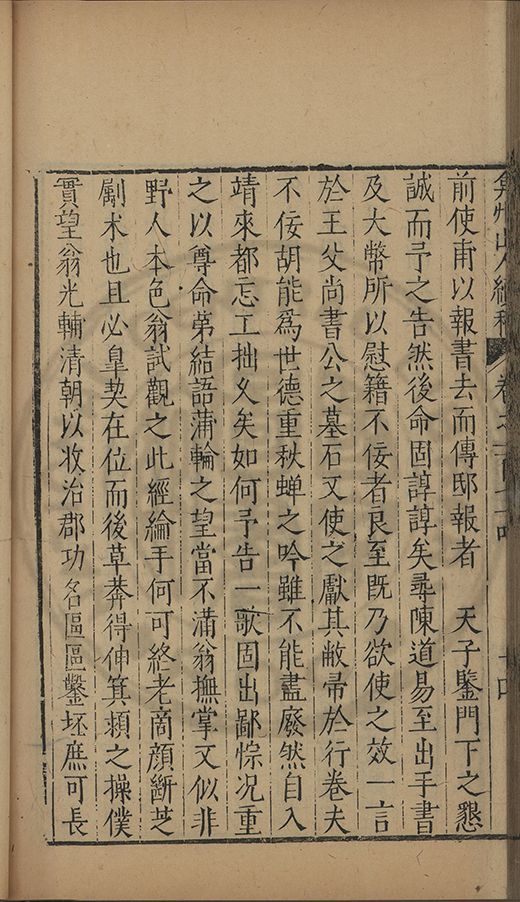 弇州山人續稿 卷之一百七十四 十四
前使甫以報書去而傳邸報者 天子鑒門下之懇
誠而予之告然後命固諄諄矣尋陳道易至出手書
及大幣所以慰籍不佞者良至既乃欲使之效一言
於王父尚書公之墓石又使之獻其敝帚於行卷夫
不佞胡能為世德重秋蟬之吟雖不能盡廢然自入
靖來都忘工拙久矣如何予告一歌固出鄙悰况重
之以尊命苐結語蒲輪之望當不滿翁撫掌又似非
野人本色翁試觀之此經綸手何可終老商顏斸芝
劚术也且必臯契在位而後草莽得伸箕頴之操僕
實望翁光輔清朝以收治郡功名區區鑿坯庶可長